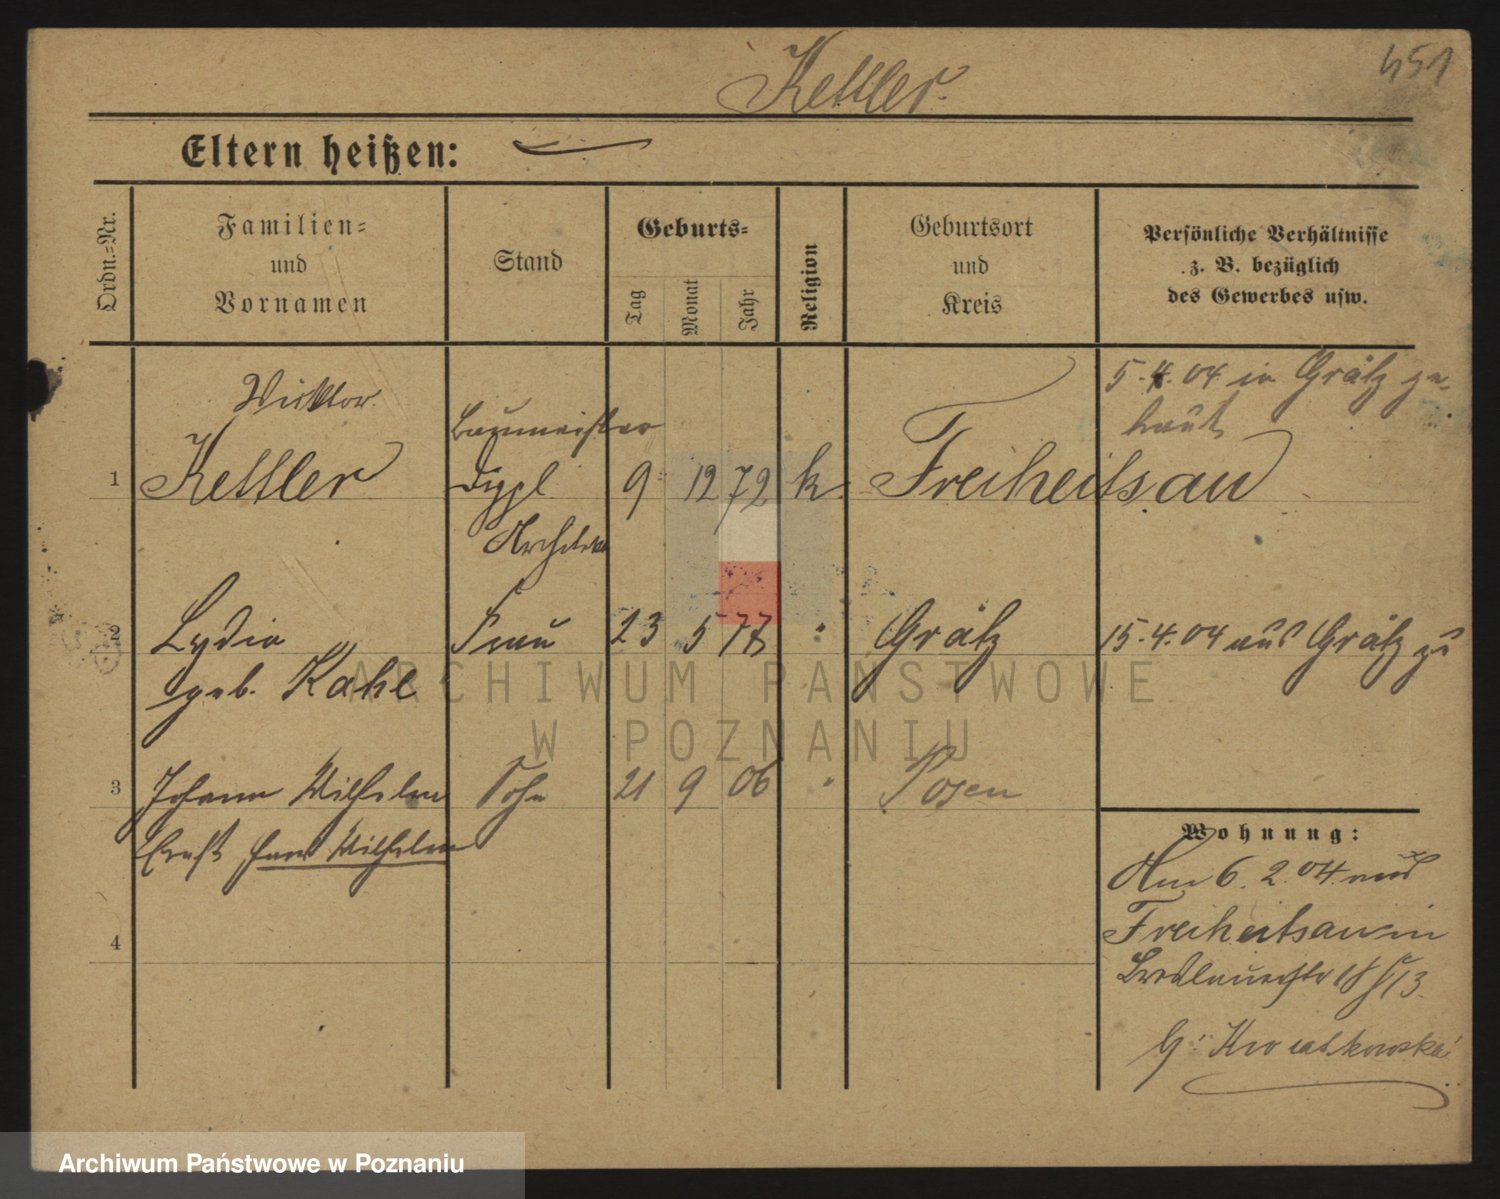 451
Kettler.
Eltern heißen:
Ordn.-Nr.
Familien-
und
Vornamen
Stand
Geburts-
Tag
Monat
Jahr
Religion
Geburtsort
und
Kreis
Persönliche Verhältnisse
z. B. bezüglich
des Gewerbes usw.
5.4.04 in Grätz ge-
traut
Wiktor
Baumeister
1 Kettler Dypl. 9 12 72 k Freiheitsau
Architekt
2 Lydia Frau 23 5 77 " Grätz 15.4.04 aus Grätz zu
geb. Kahl
3 Johann Wilhelm Sohn 21 9 06 " Posen
Ernst Hans Wilhelm
4
Wohnung:
Am 6.2.04 aus
Freiheitsau in
Breslauerstr 18
Kwiatkowska
ARCHIWUM PAŃSTWOWE
W POZNANIU
Archiwum Państwowe w Poznaniu